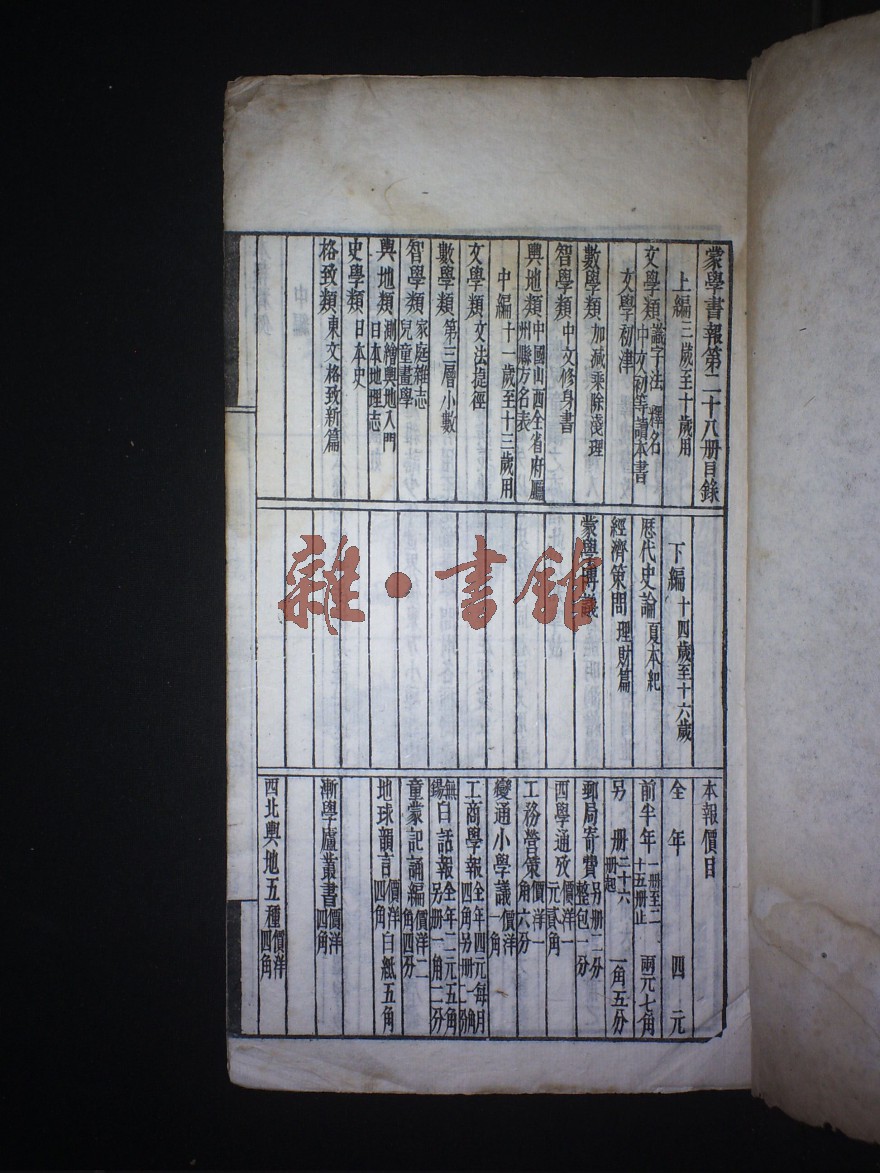 蒙學書報第二十八册目錄
上編 三歲至十歲用
文學類 識字法 釋名
中文初等讀本書
文學初津
數學類 加減乘除淺理
智學類 中文修身書
輿地類 中國山西全省府廳
州縣方名表
中編 十一歲至十三歲用
文學類 文法捷徑
數學類 第三層小數
智學類 家庭雜志
兒童畫學
輿地類 測繪輿地入門
日本地理志
史學類 日本史
格致類 東文格致新篇
下編 十四歲至十六歲
歷代史論 夏本紀
經濟策問 理財篇
蒙學博議
本報價目
全年 四元
前半年 一册至二
十五册止 兩元七角
另册 二十六
册起 一角五分
郵局寄費 另册二分
整包一分
西學通攷 價洋一
元貳角
工務營策 價洋一
角六分
變通小學議 價洋
一角
工商學報 全年四元每月
四角另册一角
無錫白話報 全年二元五角
另册一角二分
童蒙記誦編 價洋二
角四分
地球韻言 價洋白紙五角
四角
漸學廬叢書 價洋
四角
西北輿地五種 價洋
四角
雜·書館